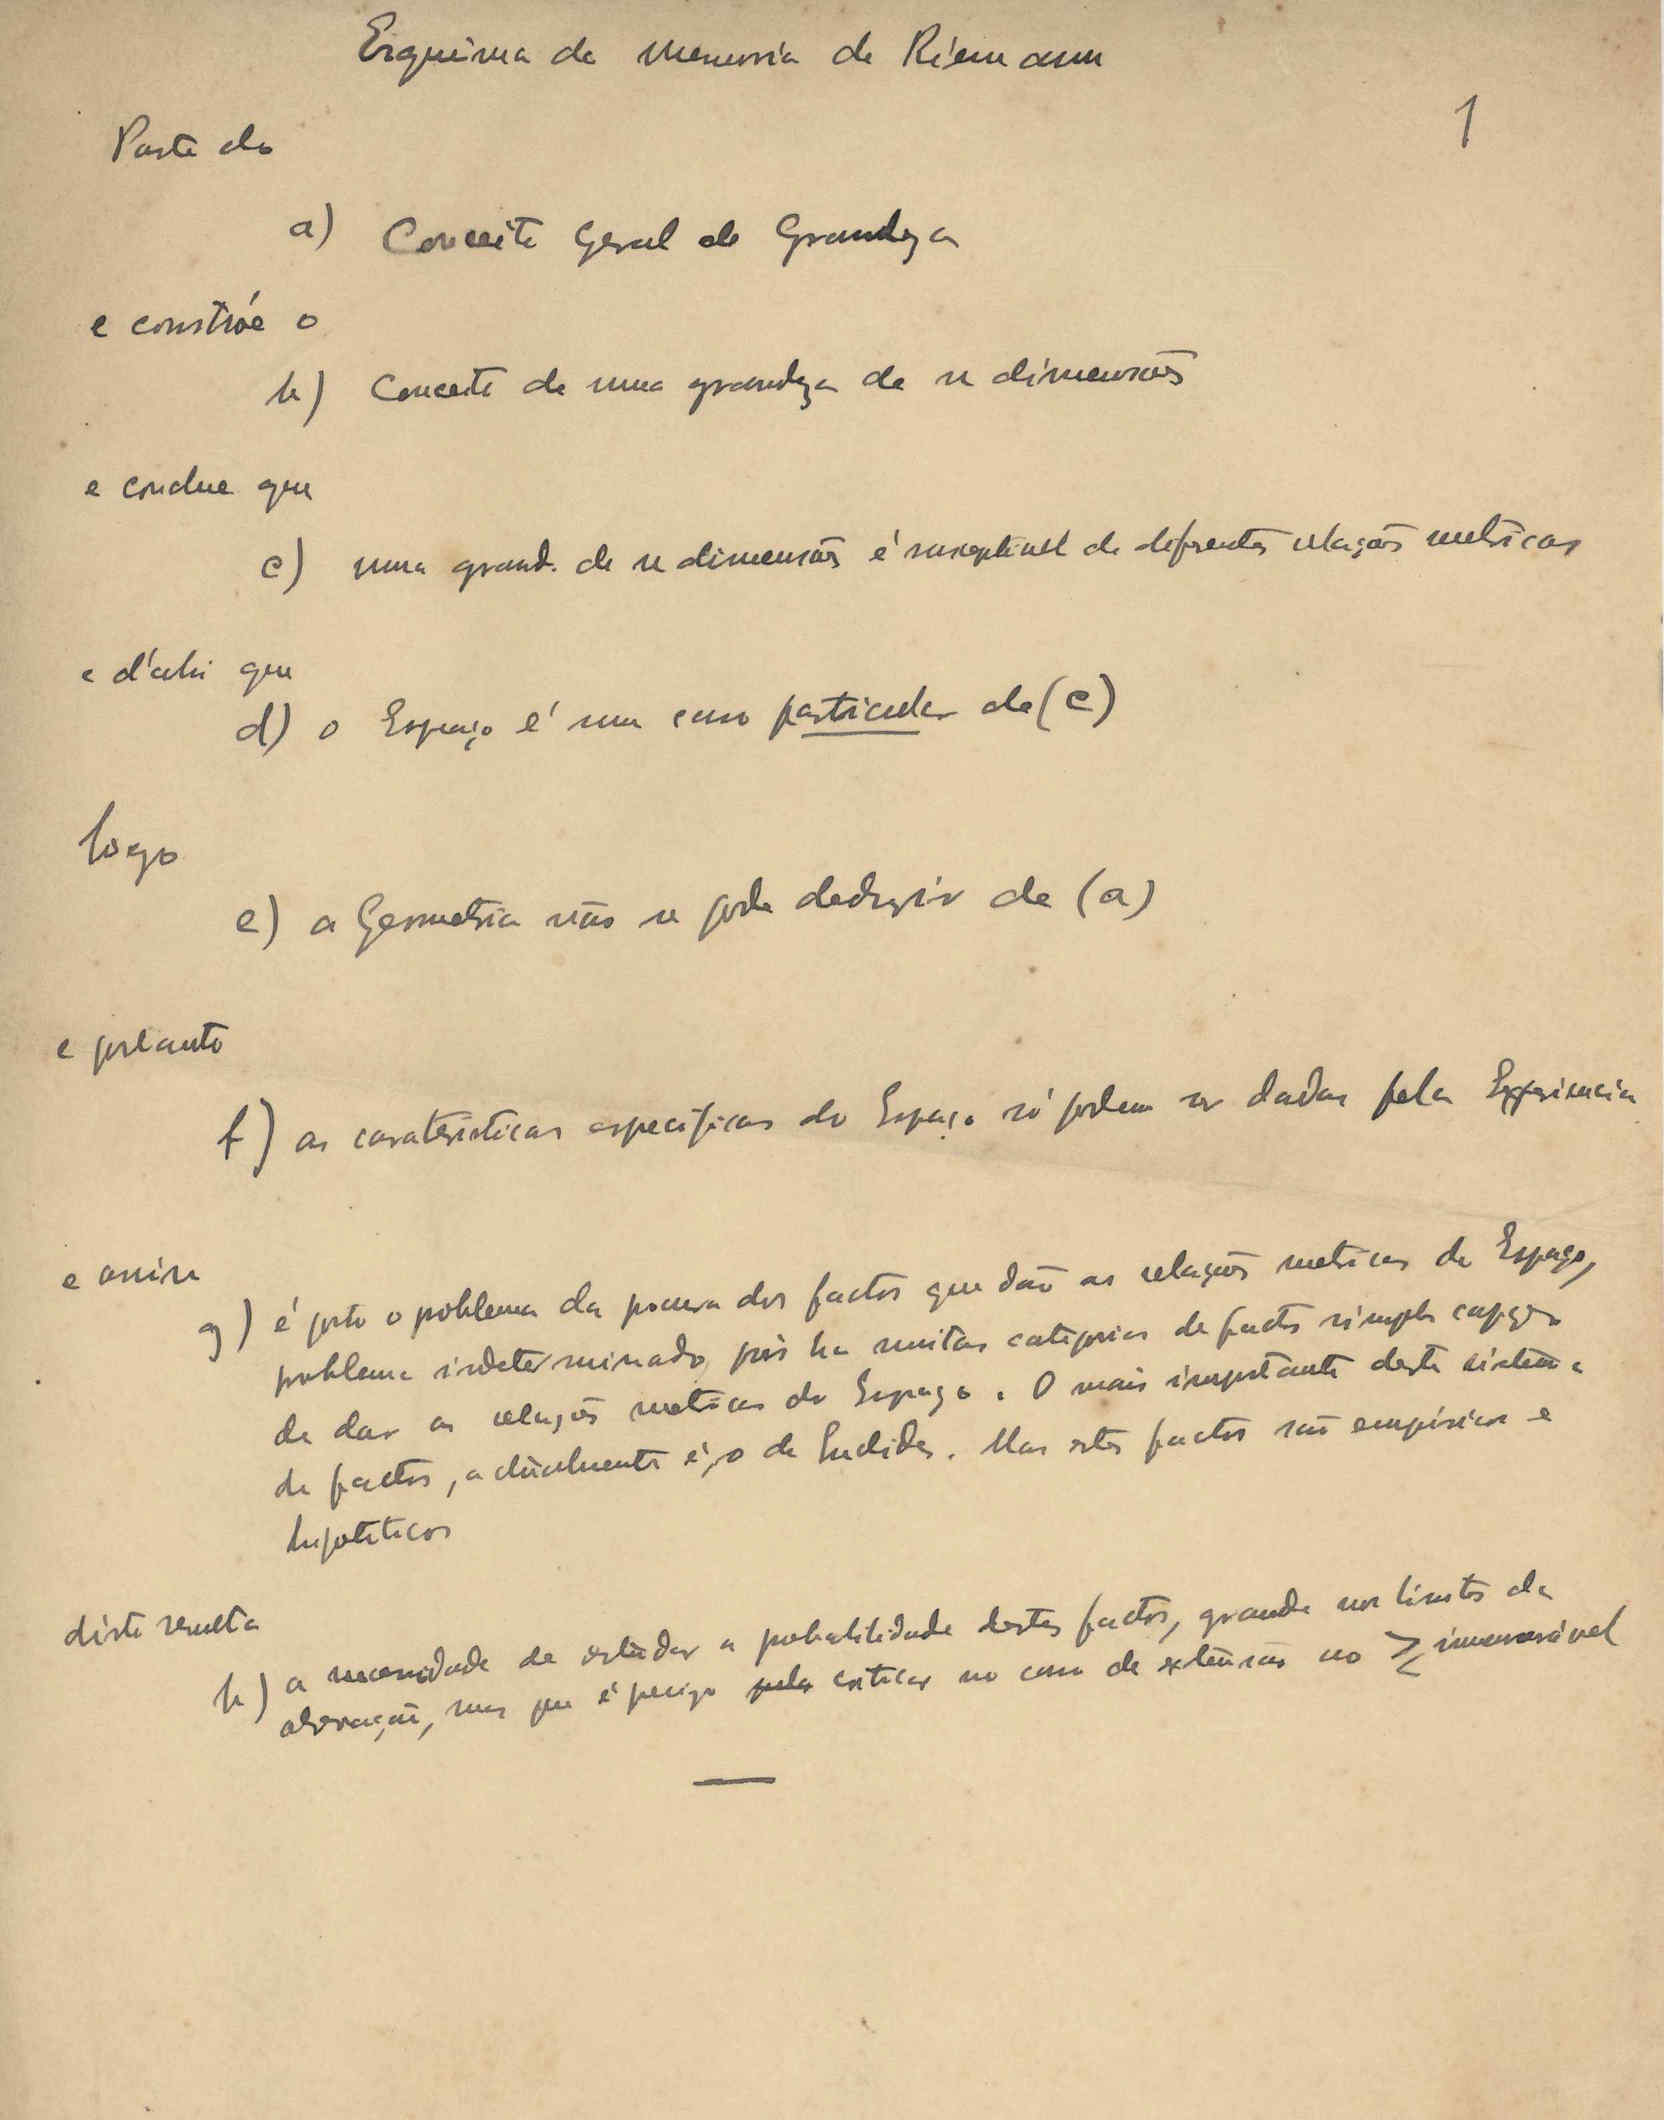 Esquêma da Memoria de Riemann
1
Parte do
a) Conceito Geral de Grandeza
e constróe o
b) Conceito de uma grandeza de n dimensões
e conclue que
c) uma grand. de n dimensões é susceptivel de diferentes relações métricas
e d'ahi que
d) o Espaço é um caso particular de (c)
logo
e) a Geometria não se pode deduzir de (a)
e portanto
f) as caraterísticas especificas do Espaço só podem ser dadas pela Experiencia
e assim
g) é posto o problema da procura dos factos que dão as relações metricas do Espaço,
problema indeterminado, pois ha muitas categorias de factos simples capazes
de dar as relações metricas do Espaço. O mais importante deste sistema
de factos, actualmente é, o de Euclides. Mas estes factos são empíricos e
hipoteticos
disto resulta
h) a necessidade de estudar a probabilidade destes factos, grande nos limites da
observação, mas que é preciso criticar no caso de extensão no ≷ imensurável